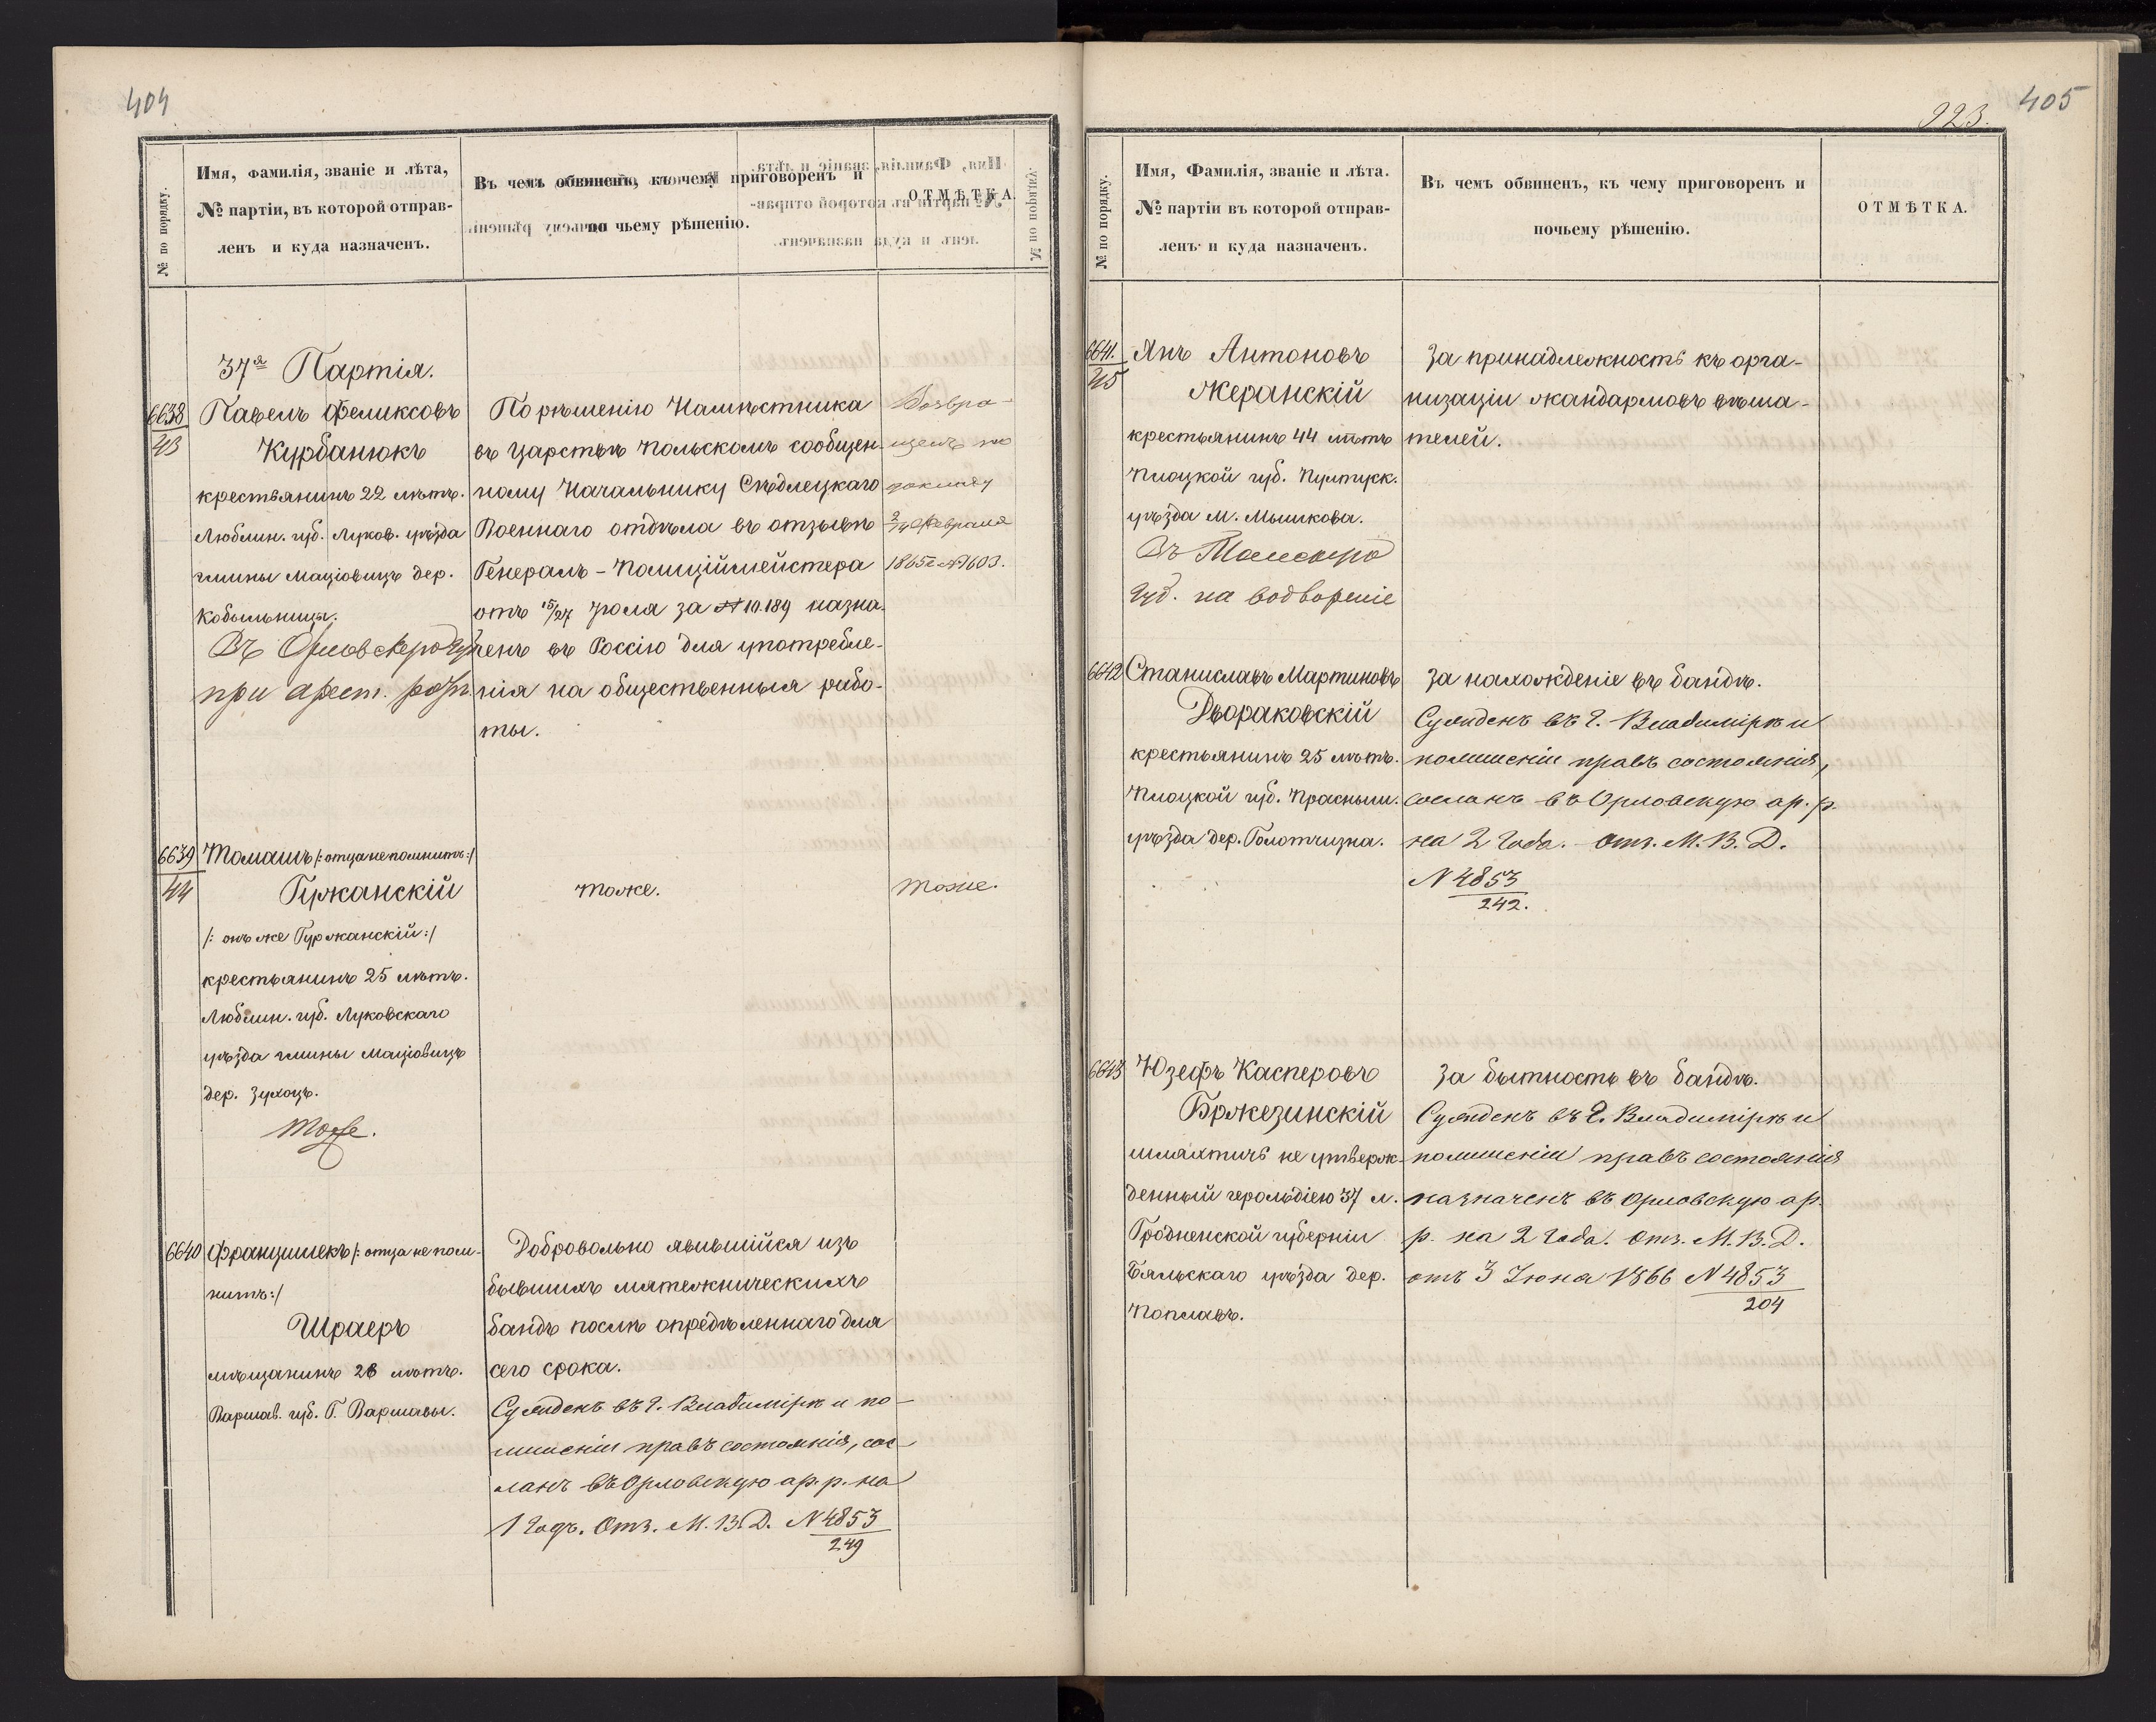 404
№ по порядку.
Имя, фамилія, званіе и лѣта,
№ партіи, въ которой отправ-
ленъ и куда назначенъ.
Въ чемъ обвиненъ, къ чему приговоренъ и
по чьему рѣшенію.
ОТМѢТКА.
37я Партія.
6638
43
Павелъ Феликсовъ
Курбанюкъ
крестьянинъ 22 лѣтъ.
Люблин. губ. Луков. уѣзда
гмины Маціовицъ дер.
Кобыльницы.
Въ Орловскую губ.
при арест. рот.
По рѣшенію Намѣстника
въ Царствѣ Польскомъ сообщен-
ному Начальнику Сѣдлецкаго
Военнаго отдѣла въ отзывѣ
Генералъ-Полиціймейстера
отъ 15/27 Іюля за № 10.189 назна-
ченъ въ Россію для употребле-
нія на общественныя рабо-
ты.
Возвра-
щенъ по
февраля
1865 г. № 1603.
6639
44
Томашъ /: отца не помнитъ :/
Гржанскій
/: онъ же Гуржанскій :/
крестьянинъ 25 лѣтъ.
Люблин. губ. Луковскаго
уѣзда гмины Маціовицъ
дер. Зухоцъ.
Тоже.
Тоже.
Тоже.
6640
Францишекъ /: отца не пом-
нитъ :/
Шраеръ
мѣщанинъ 28 лѣтъ.
Варшав. губ. Г. Варшавы.
Добровольно явившійся изъ
бывшихъ мятежническихъ
бандъ послѣ опредѣленнаго для
сего срока.
Сужденъ въ г. Владимірѣ и по
лишеніи правъ состоянія, сос-
ланъ въ Орловскую ар. р. на
1 годъ. Отз. М. В. Д. № 4853
249
405
223.
№ по порядку.
Имя, Фамилія, званіе и лѣта.
№ партіи въ которой отправ-
ленъ и куда назначенъ.
Въ чемъ обвиненъ, къ чему приговоренъ и
почьему рѣшенію.
ОТМѢТКА.
6641.
45
Янъ Антоновъ
Жеранскій
крестьянинъ 44 лѣтъ
Плоцкой губ. Пултуск.
уѣзда м. Мышкова.
Въ Томскую
губ. на водвореніе
За принадлежность къ орга-
низаціи жандармовъ вѣша-
телей.
6642
Станиславъ Мартиновъ
Двораковскій
крестьянинъ 25 лѣтъ.
Плоцкой губ. Прасныш.
уѣзда дер. Голотчизна.
За нахожденіе въ бандѣ.
Сужденъ въ г. Владимірѣ и
по лишеніи правъ состоянія,
сосланъ въ Орловскую ар. р.
на 2 года. Отз. М. В. Д.
№ 4853
242.
6643
Юзефъ Касперовъ
Бржезинскій
шляхтичъ не утверж-
денный герольдіею 37 л.
Гродненской губерніи
Бяльскаго уѣзда дер.
Поплавъ.
За бытность въ бандѣ.
Сужденъ въ г. Владимірѣ и
по лишеніи правъ состоянія
назначенъ въ Орловскую ар.
р. на 2 года. Отз. М. В. Д.
отъ 3 Іюна 1866 № 4853
204